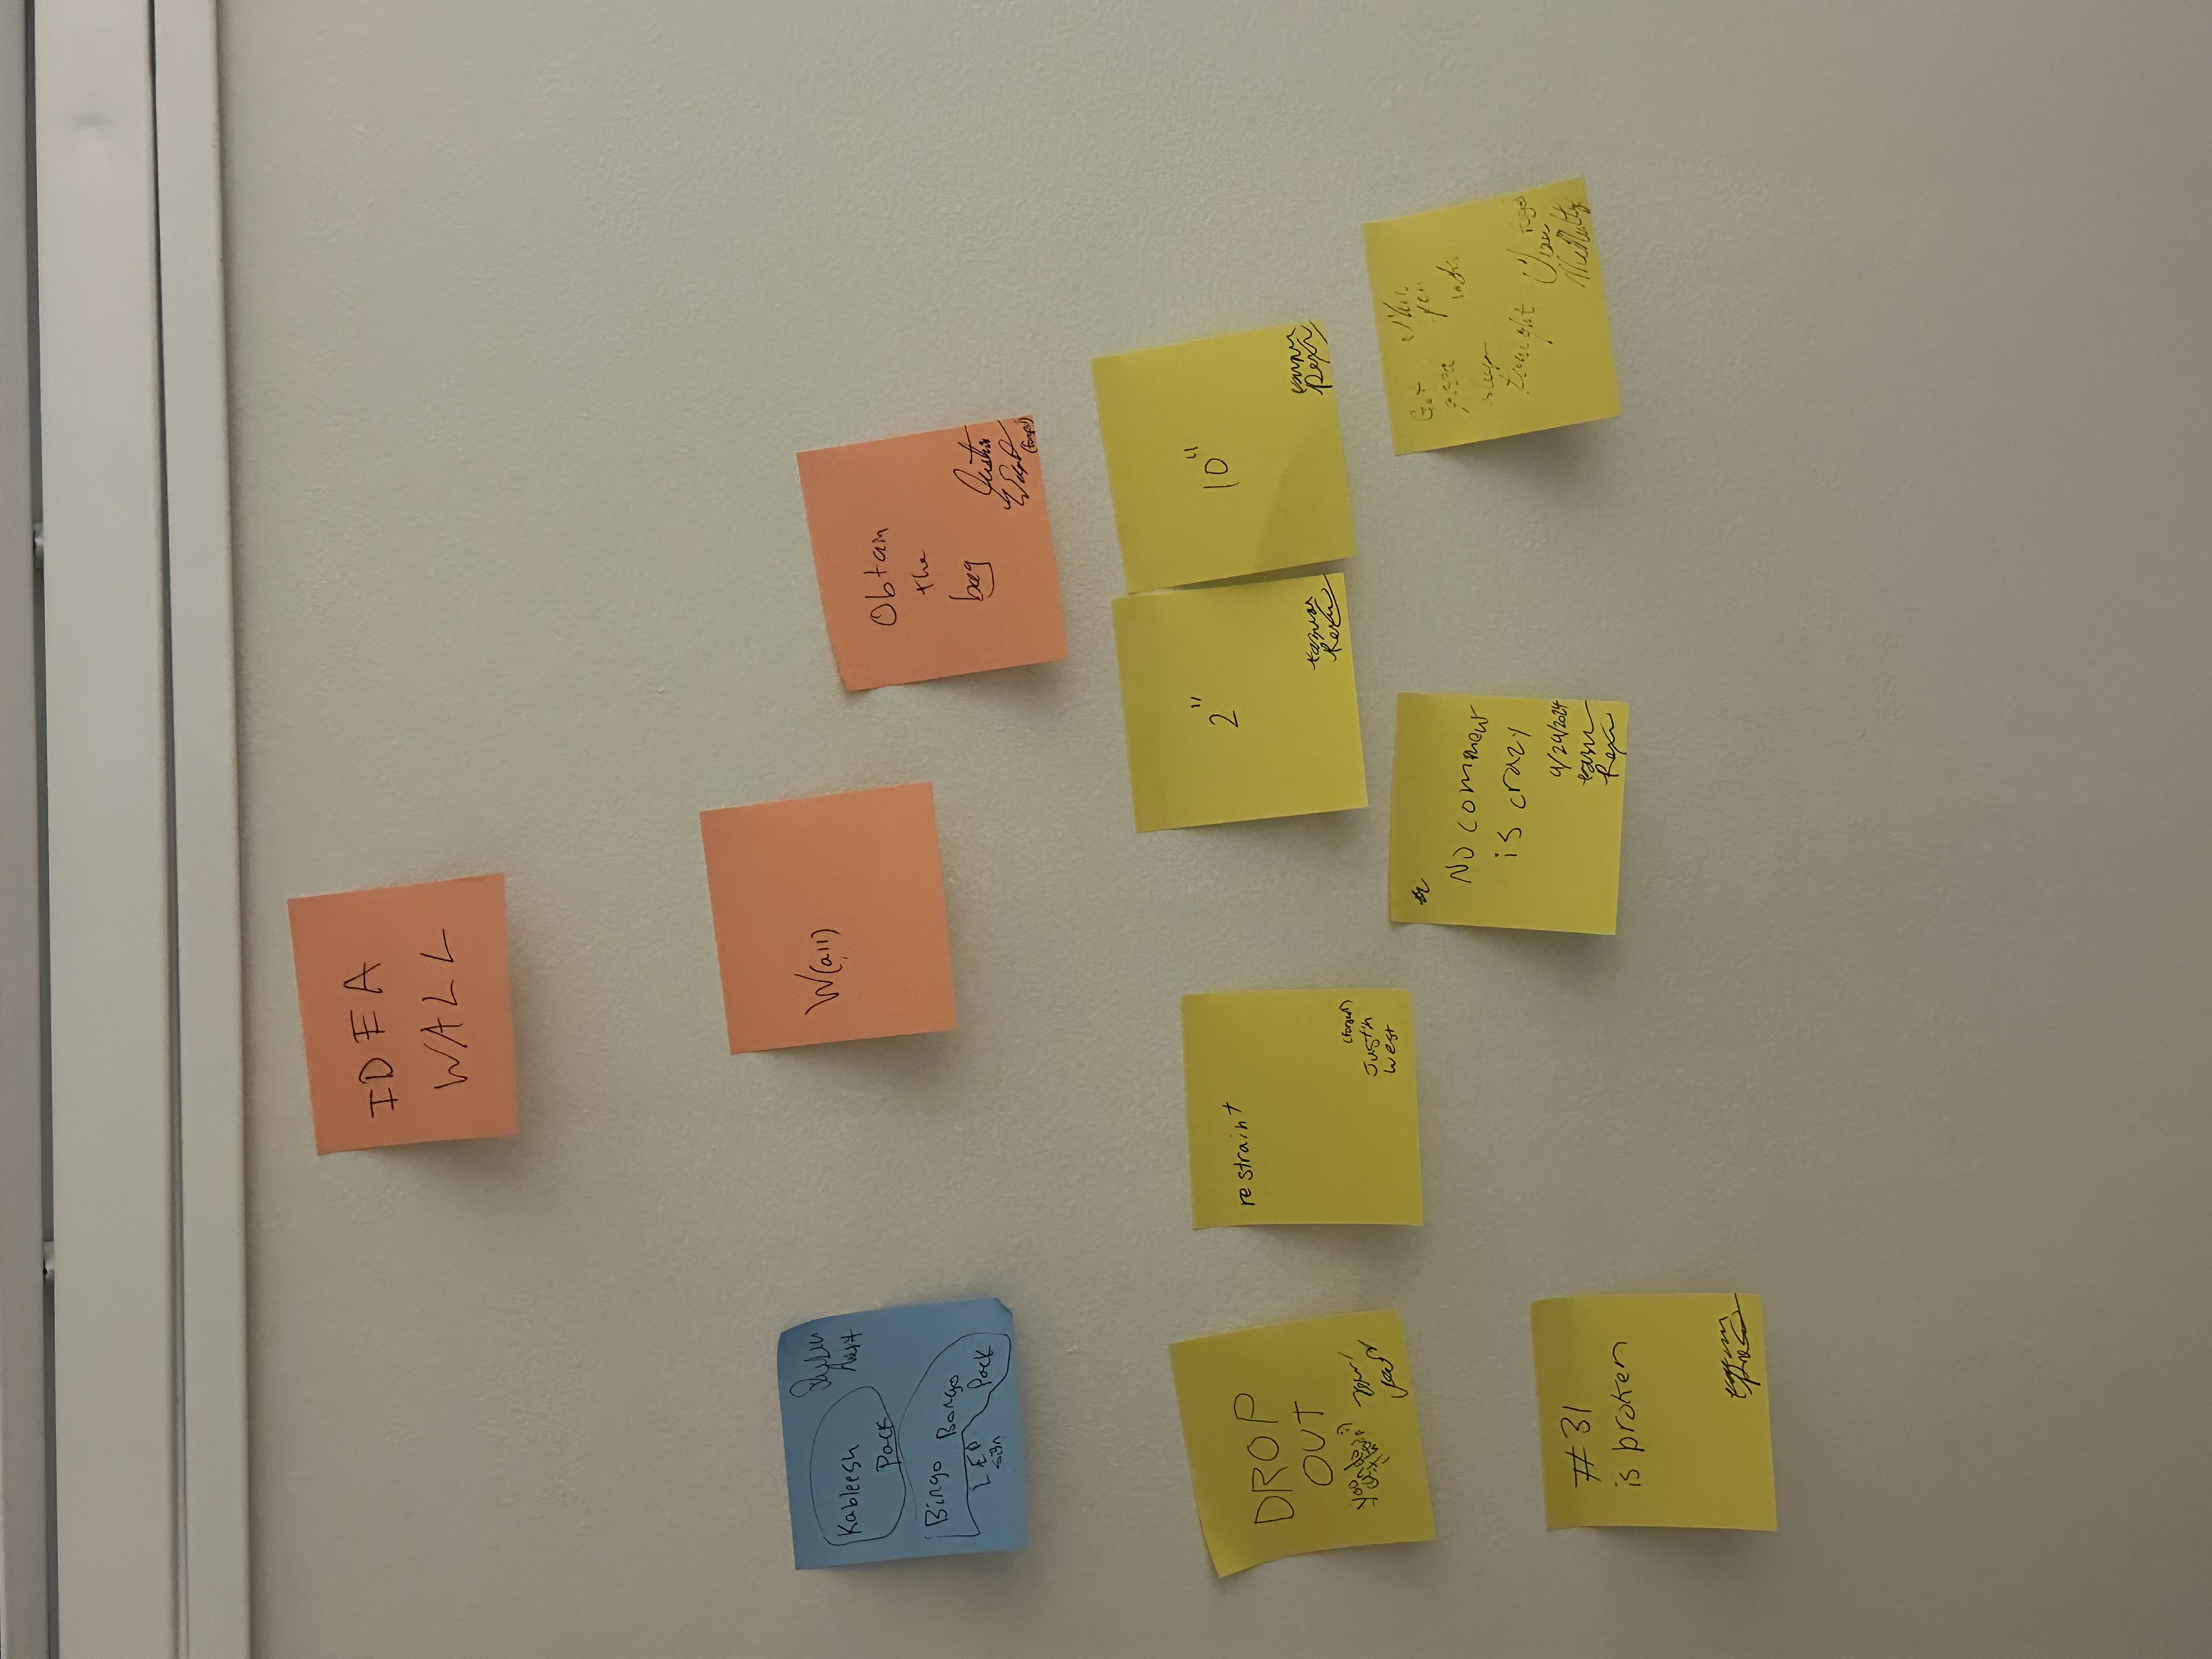 IDEA
WALL
Kableesh
Pack
Bingo Bongo
Pack
LED
sign
W(all)
Obtain
the
bag
Justin
West
(forged)
DROP
OUT
you
can do
it
restraint
(forged)
Justin
West
2"
10"
No comment
is crazy
9/29/2024
Get
good
sleep
tonight
forged
McNulty
#31
is broken